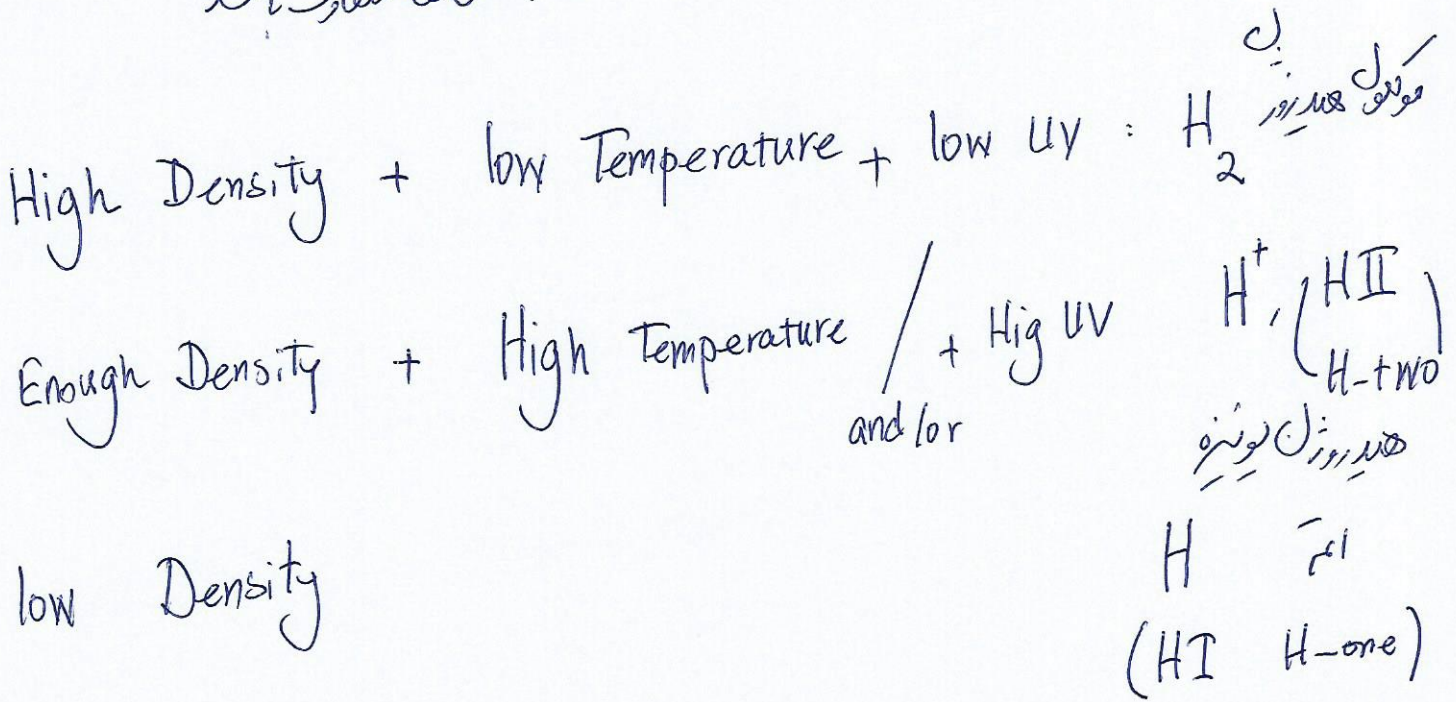 High Density + low Temperature + low UV : H2 مولکول هیدروژن
Enough Density + High Temperature / + Hig UV H+, (HII
and/or H-two)
هیدروژن یونیزه
low Density H اتم
(HI H-one)